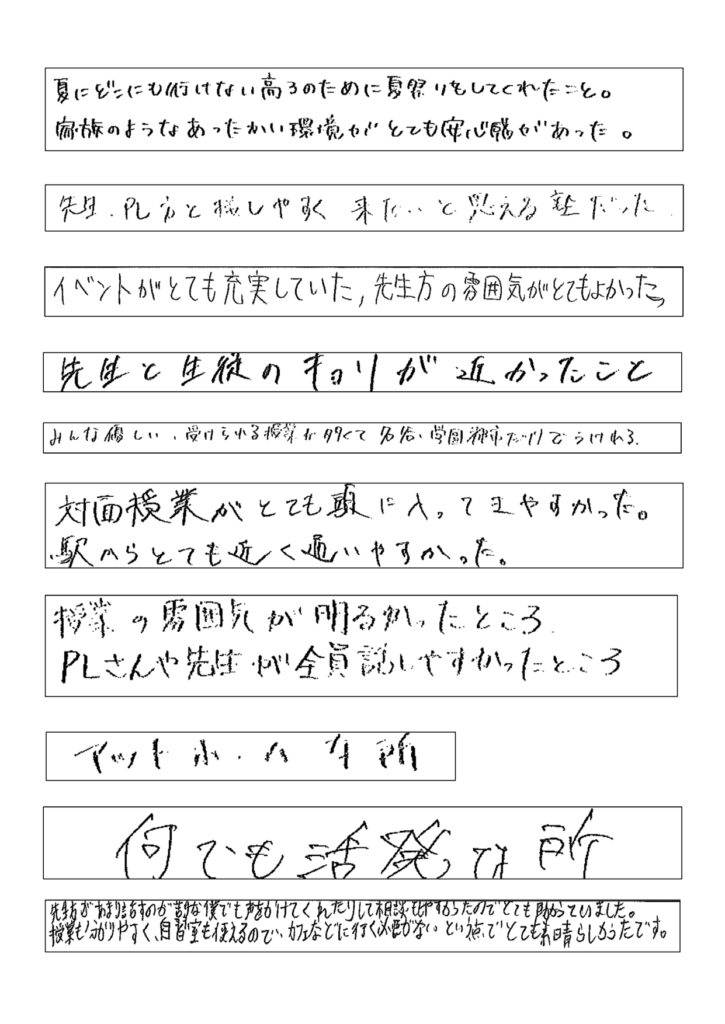 夏にどこにも行けない高3のために夏祭りをしてくれたこと。
家族のようなあったかい環境がとても安心感があった。
先生、PL方と接しやすく 来たいと思える塾だった
イベントがとても充実していた,先生方の雰囲気がとてもよかった
先生と生徒のキョリが近かったこと
みんな優しい、受けられる授業が多くて 名谷、学園都市だけでうけれる
対面授業がとても頭に入ってきやすかった。
駅からとても近く通いやすかった。
授業の雰囲気が明るかったところ
PLさんや先生が全員話しやすかったところ
アットホームな所
何でも活発な所
先生方があまり話すのが苦手な僕でも声をかけてくれたりして相談もしやすかったのでとても助かっていました。
授業も分かりやすく、自習室も使えるので、カフェなどに行く必要がないという点でとても素晴らしかったです。